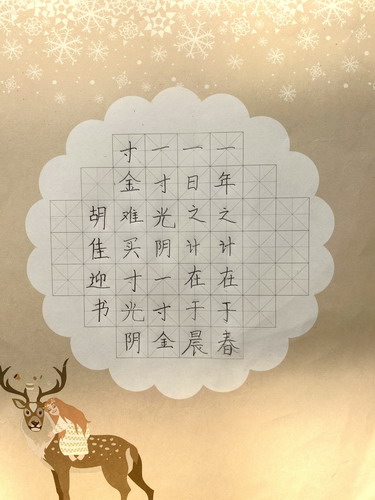 一年之计在于春
一日之计在于晨
一寸光阴一寸金
寸金难买寸光阴
胡佳迎书